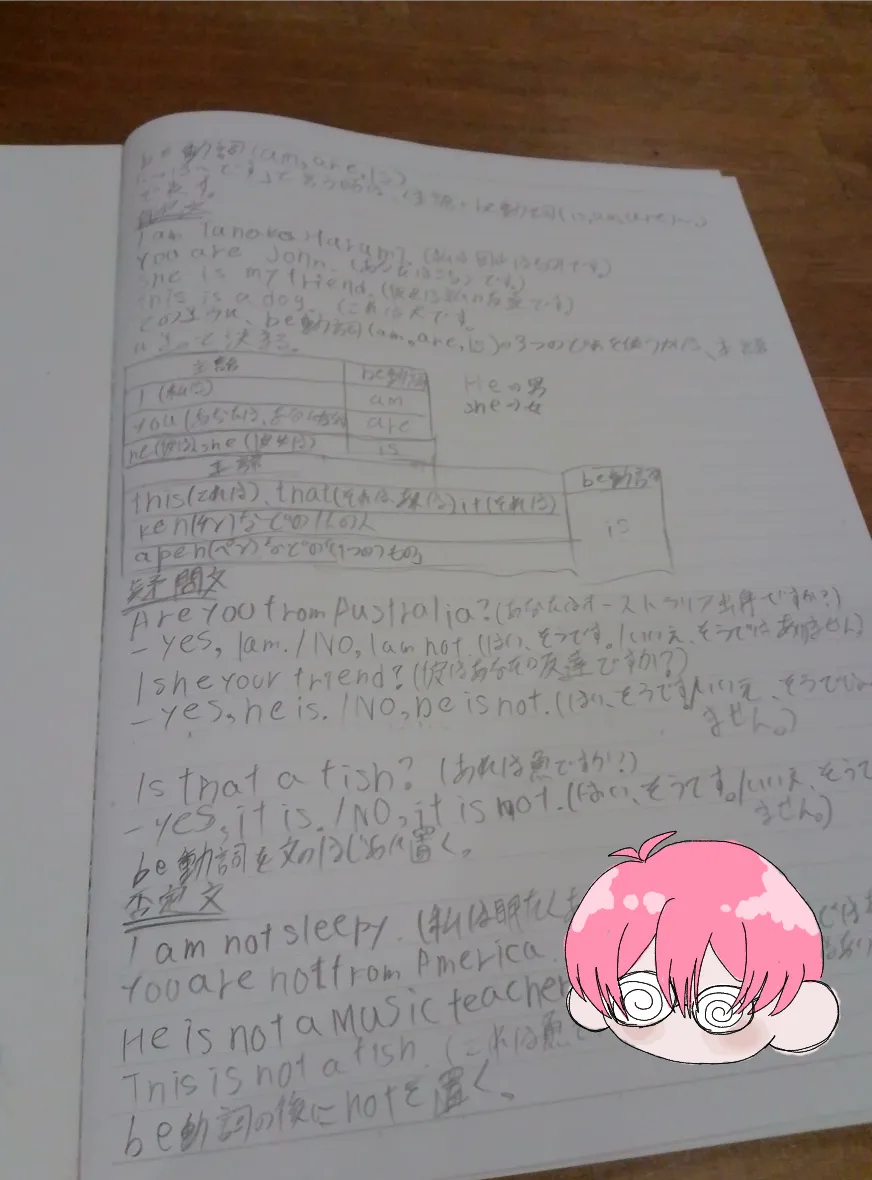 be動詞(am,are,is)
です。
I am Tanaka Harumi.
you are John.
she is my friend.
this is a dog. (これは犬です。
このように、be動詞(am,are,is)の3つのどれを使うかは、主語
によって決まる。
主語 be動詞
I (私は) am
you (あなたは、あなたたちは) are
he(彼は),she (彼女は) is
He→男
she→女
主語 be動詞
this(これは)、that(それは、あれは),it(それは) is
ken(ケン)などの1人の人
apen(ペン)などの1つのもの
疑問文
Are you from Australia? (あなたはオーストラリア出身ですか?)
– yes, Iam. / NO, I am not. (はい、そうです。/いいえ、そうではありません)
I she your friend? (彼はあなたの友達ですか?)
– yes, he is. / NO, he is not. (はい、そうです/いいえ、そうでは
ません。)
Is that a fish? (あれは魚ですか?)
– yes, it is. / NO, it is not. (はい、そうです。/いいえ、そうで
ません。)
be動詞を文のはじめに置く。
否定文
I am not sleepy. (私は眠たく
You are not from America.
He is not a music teacher
This is not a fish. (これは魚
be動詞の後にnotを置く。